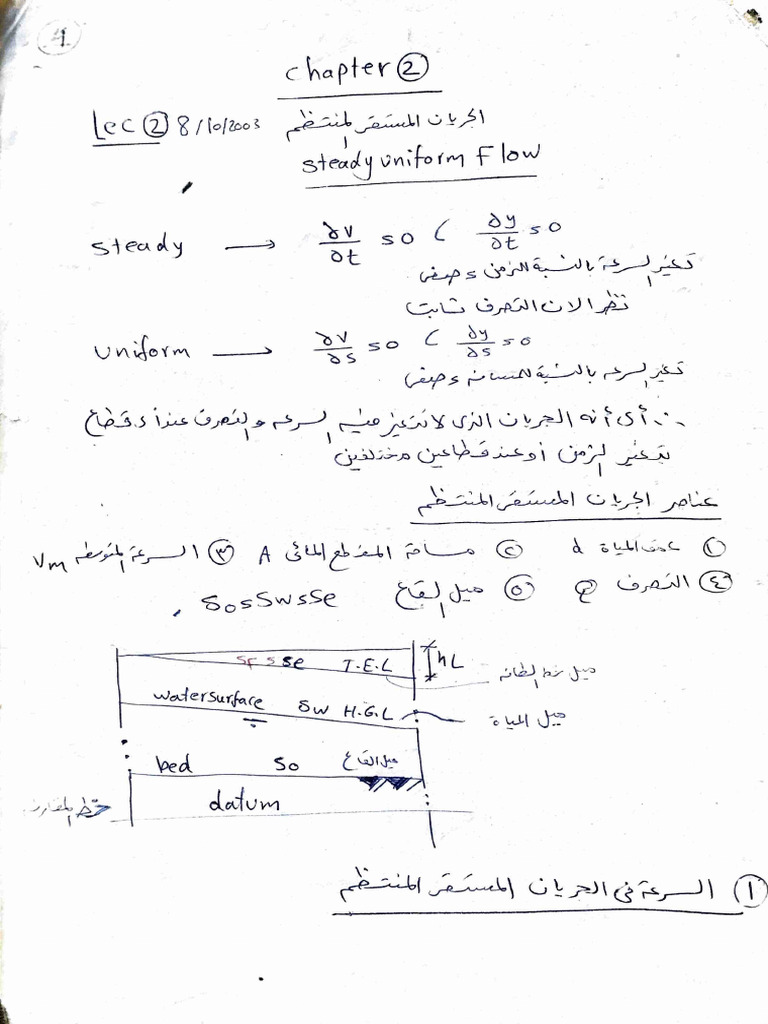 1
chapter ②
Lec ② 8/10/2003 الجريان المستقر المنتظم
steady uniform Flow
steady → ∂v/∂t = 0 ( ∂y/∂t = 0
تغير السرعة بالنسبة للزمن = صفر
نظراً لان التصرف ثابت
uniform → ∂v/∂s = 0 ( ∂y/∂s = 0
تغير السرعه بالنسبة للمسافه = صفر
∴ أى أنه الجريان الذى لا تتغير فيه السرعه والتصرف عند أى قطاع
بتغير الزمن أو عند قطاعين مختلفين
عناصر الجريان المستقر المنتظم
① عمق المياة d ② مساحة المقطع المائى A ③ السرعة المتوسطه Vm
④ التصرف Q ⑤ ميل القاع So = Sw = Se
Sf = Se T.E.L hL
ميل خط الطاقه
watersurface Sw H.G.L
ميل المياة
bed So ميل القاع
datum
خط المقارنه
① السرعة فى الجريان المستقر المنتظم